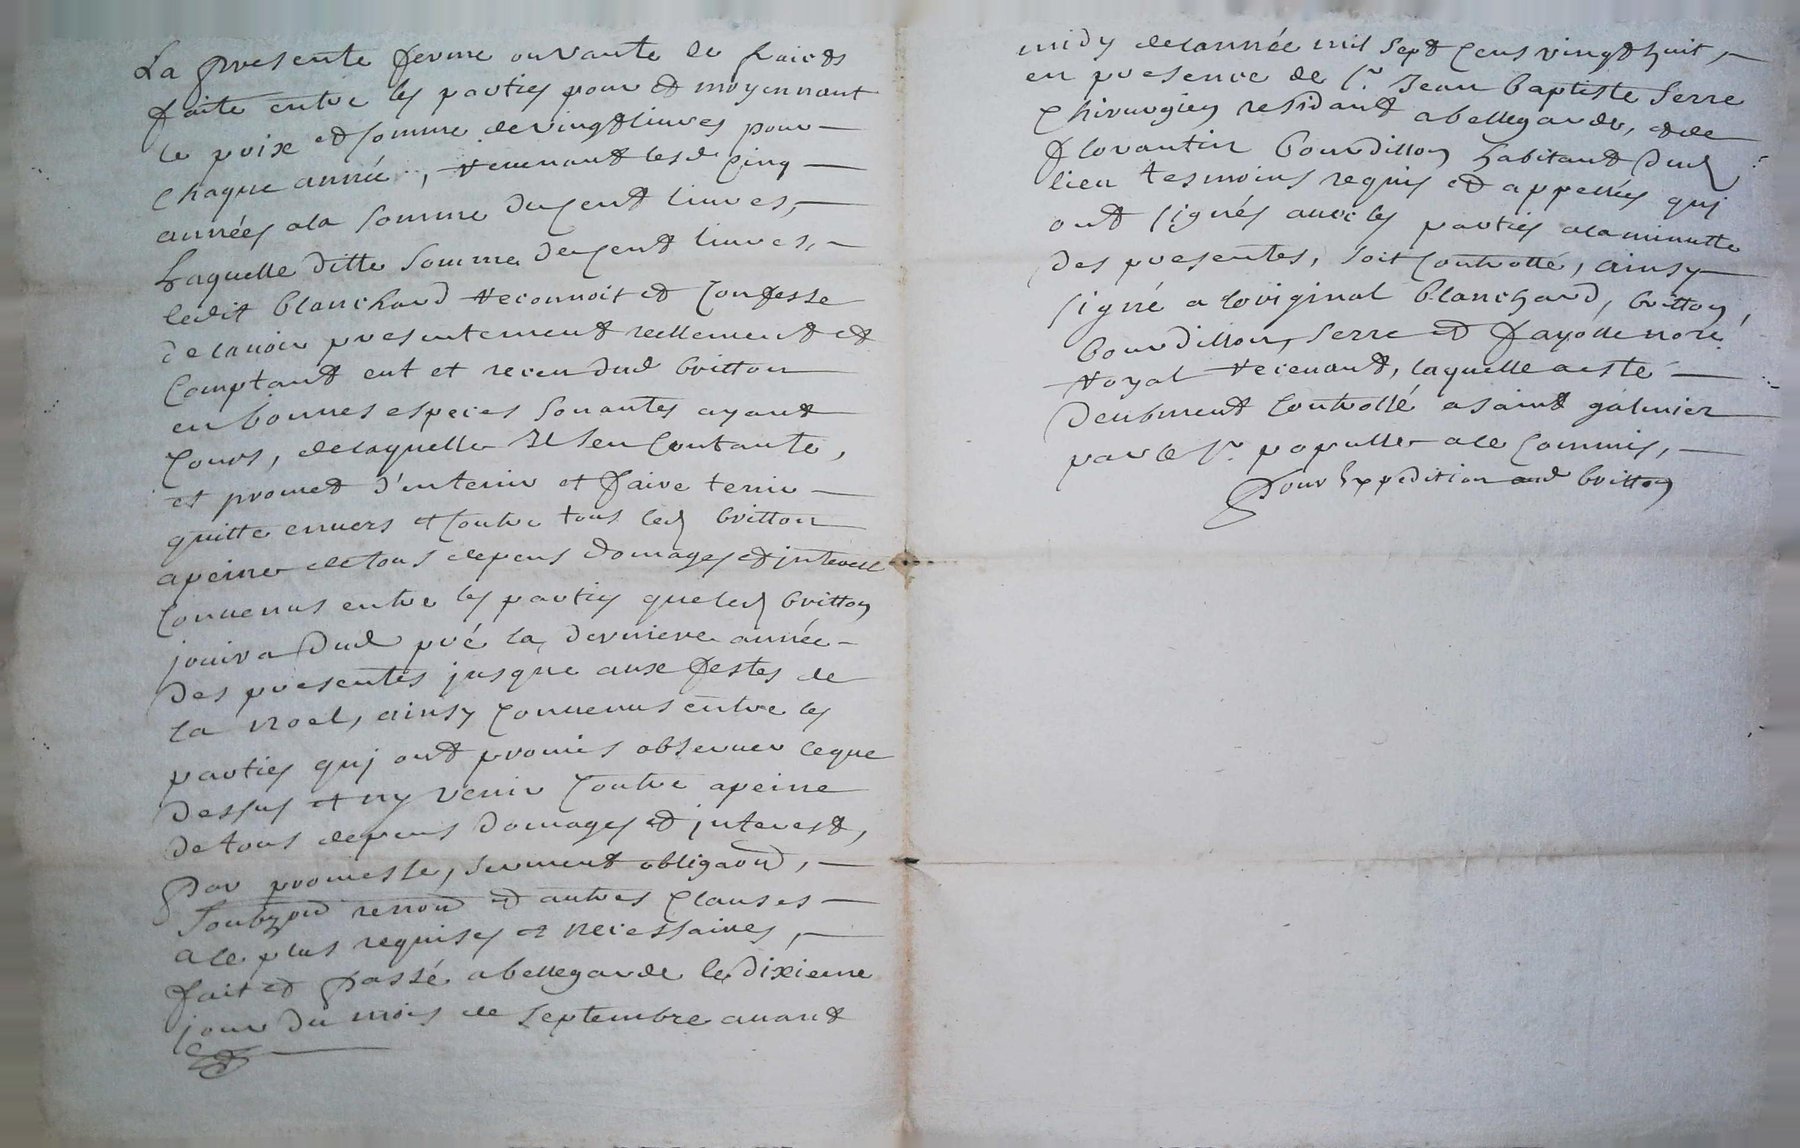 La presente ferme ou vante de fruicts
faite entre les parties pour et moyennant
le prix et somme de vingt livres pour
chaque année, revenant lesd cinq
années ala somme de cent livres,
Laquelle ditte somme de cent livres,
ledit Blanchard reconnoit et confesse
de lavoir presentement reellement et
comptant eut et receu dud britton
en bonnes especes sonantes ayant
cours, delaquelle Il sen contante,
et promet d'en tenir et faire tenir
quitte envers et contre tous led britton
apeine de tous depens domages et interest
convenus entre les parties que led britton
jouira dud pré la derniere année
des presentes jusque aux festes de
la noel, ainsy convenus entre les
parties quj ont promis observer ceque
dessus et ny venir contre apeine
de tous depens domages et interest,
Par promesse, serment obligaon,
soubzon renon et autres clauses
ale plus requises et necessaires,
fait et passé abellegarde le dixieme
jour du mois de septembre avant
midy delannée mil sept cens vingt huit,
en presence de sr Jean baptiste serre
chirurgien residant abellegarde, et de
florantin bourdillon habitant dud
lieu tesmoins requis et appellés quj
ont signés avec les parties ala minutte
des presentes, soit controllé, ainsy
signé a loriginal blanchard, britton,
bourdillon, serre et fayolle nore
royal recevant, laquelle a esté
deubment controllé asaint galmier
par le sr populle ale commis,
Pour Expedition aud britton